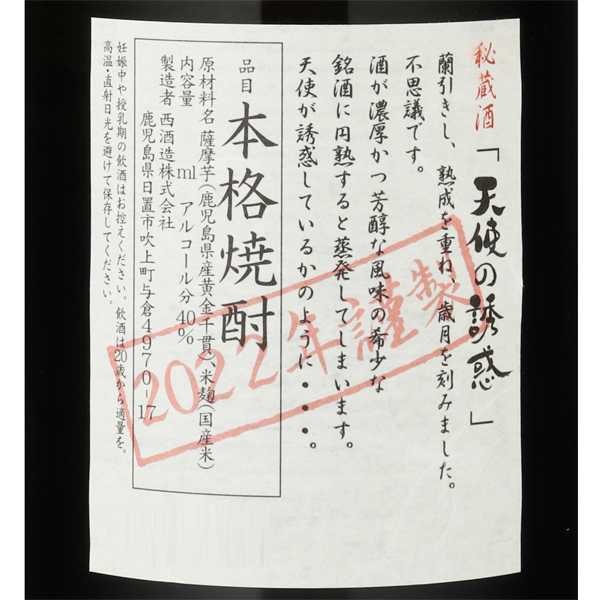 秘蔵酒「天使の誘惑」
蘭引きし、熟成を重ね、歳月を刻みました。
不思議です。
酒が濃厚かつ芳醇な風味の希少な
銘酒に円熟すると蒸発してしまいます。
天使が誘惑しているかのように・・・。
2022年謹製
品目 本格焼酎
原材料名 薩摩芋(鹿児島県産黄金千貫)、米麹(国産米)
内容量 ml アルコール分 40%
製造者 西酒造株式会社
鹿児島県日置市吹上町与倉4970-17
妊娠中や授乳期の飲酒はお控えください。飲酒は20歳から適量を。
高温・直射日光を避けて保存してください。